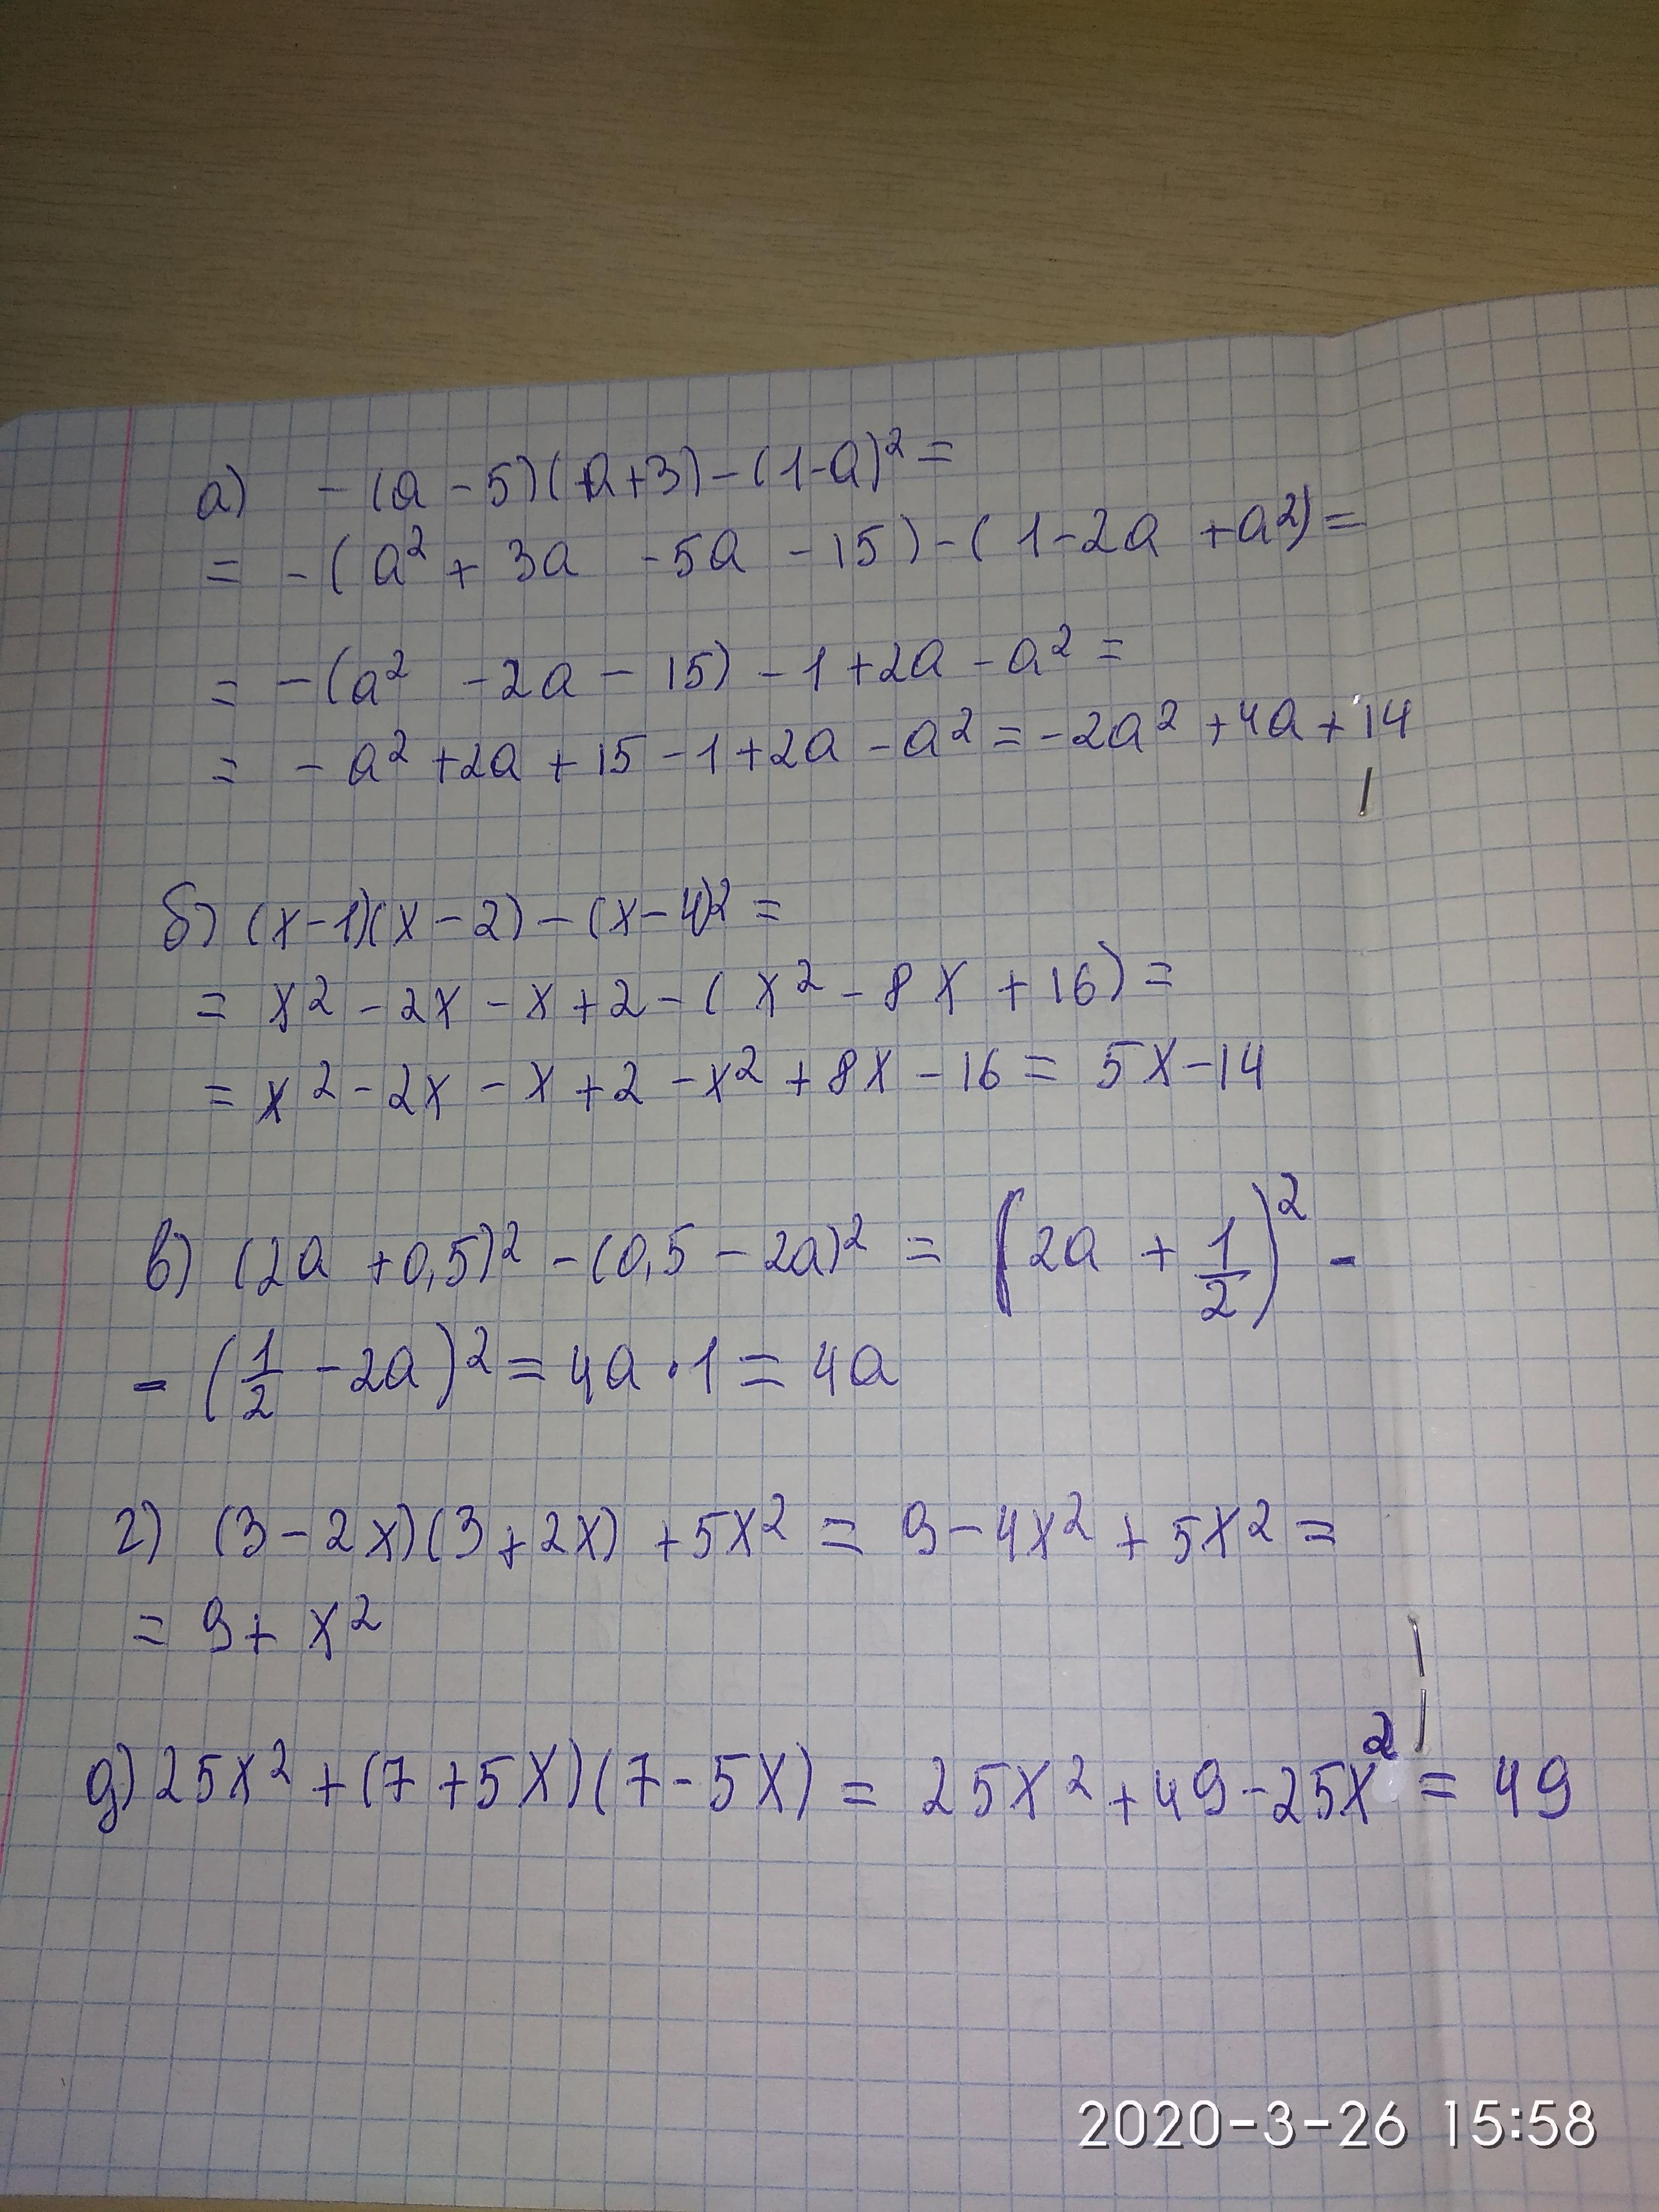 а) -(a-5)(a+3)-(1-a)²=
= -(a²+3a -5a -15)-(1-2a +a²)=
= -(a² -2a - 15) -1+2a -a² =
= -a²+2a+15-1+2a-a²=-2a²+4a+14
б) (x-1)(x-2)-(x-4)²=
= x²-2x-x+2-(x²-8x+16)=
= x²-2x-x+2-x²+8x-16= 5x-14
в) (2a+0,5)²-(0,5-2a)² = (2a+1/2)² -
- (1/2 -2a)²=4a·1=4a
г) (3-2x)(3+2x)+5x² = 9-4x²+5x²=
= 9+x²
д) 25x²+(7+5x)(7-5x)= 25x²+49-25x²=49
2020-3-26 15:58